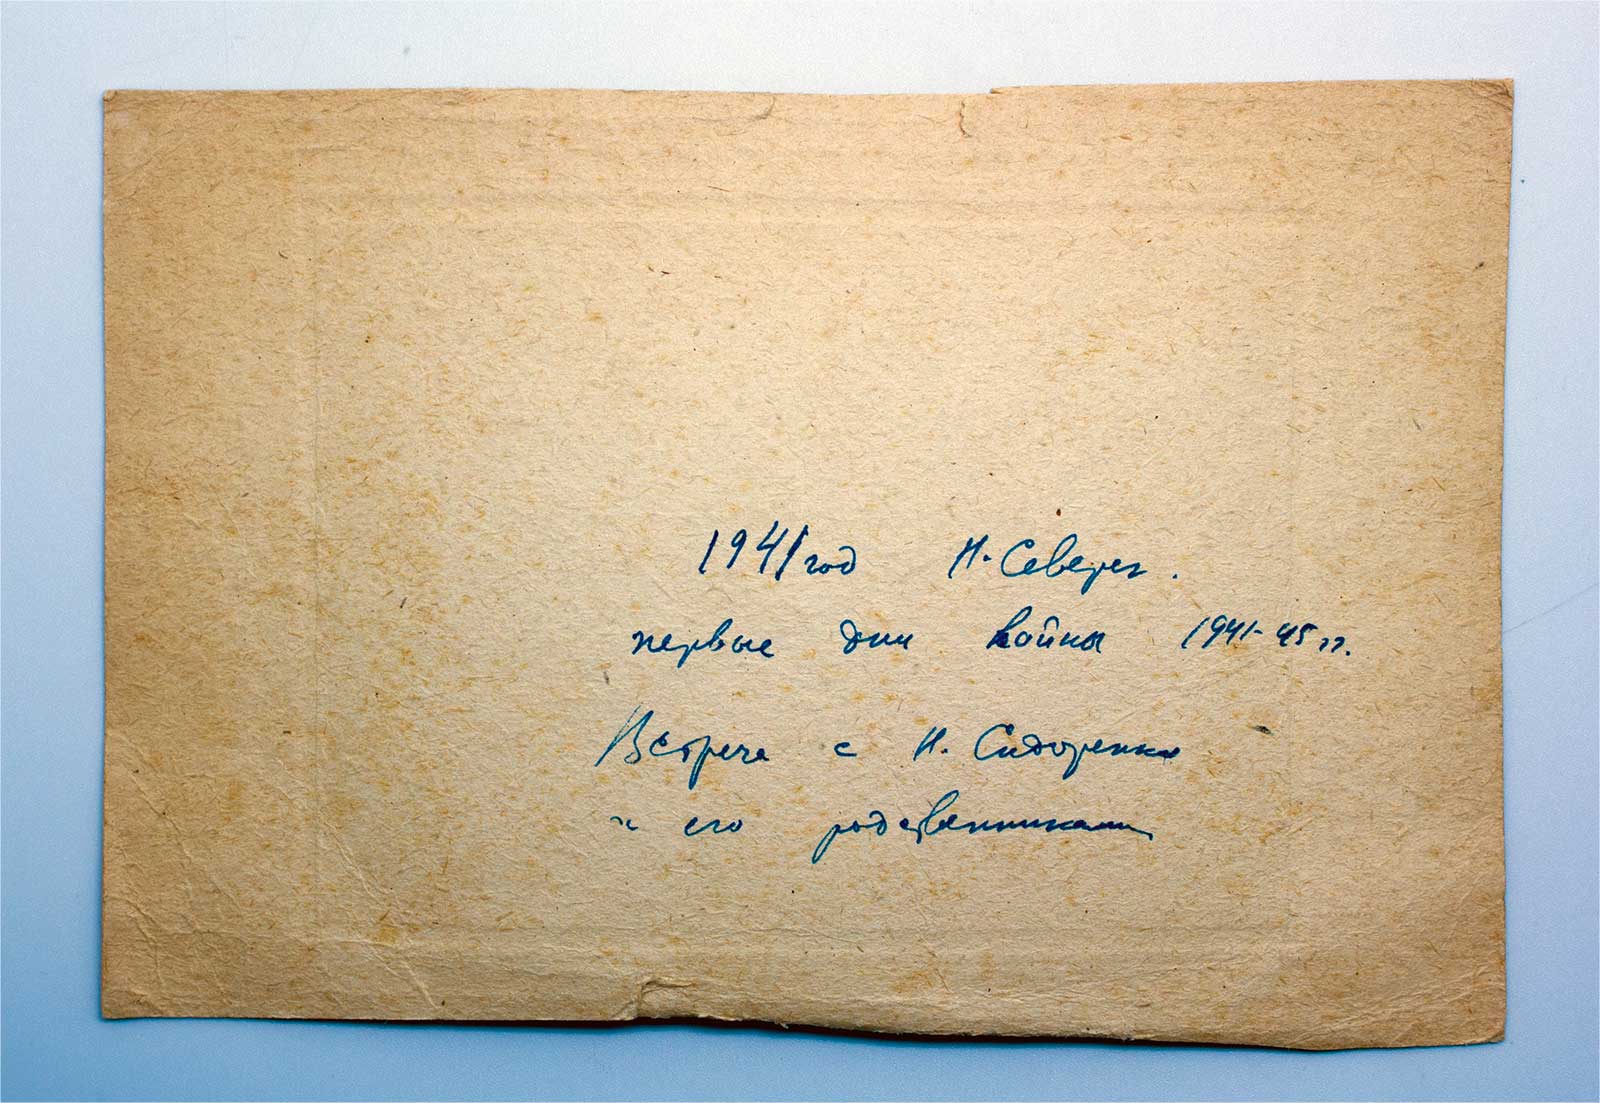 1941 год Н-Северск.
первые дни войны 1941-45 гг.
Встреча с Н. Сидоренко
и его родственниками